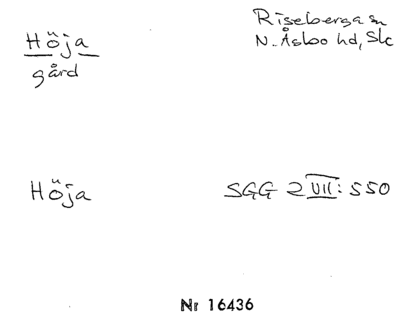 Höja
gård
Riseberga sn
N. Åsbo hd, Skc
Höja
SGG 2 VII: 550
Nr 16436